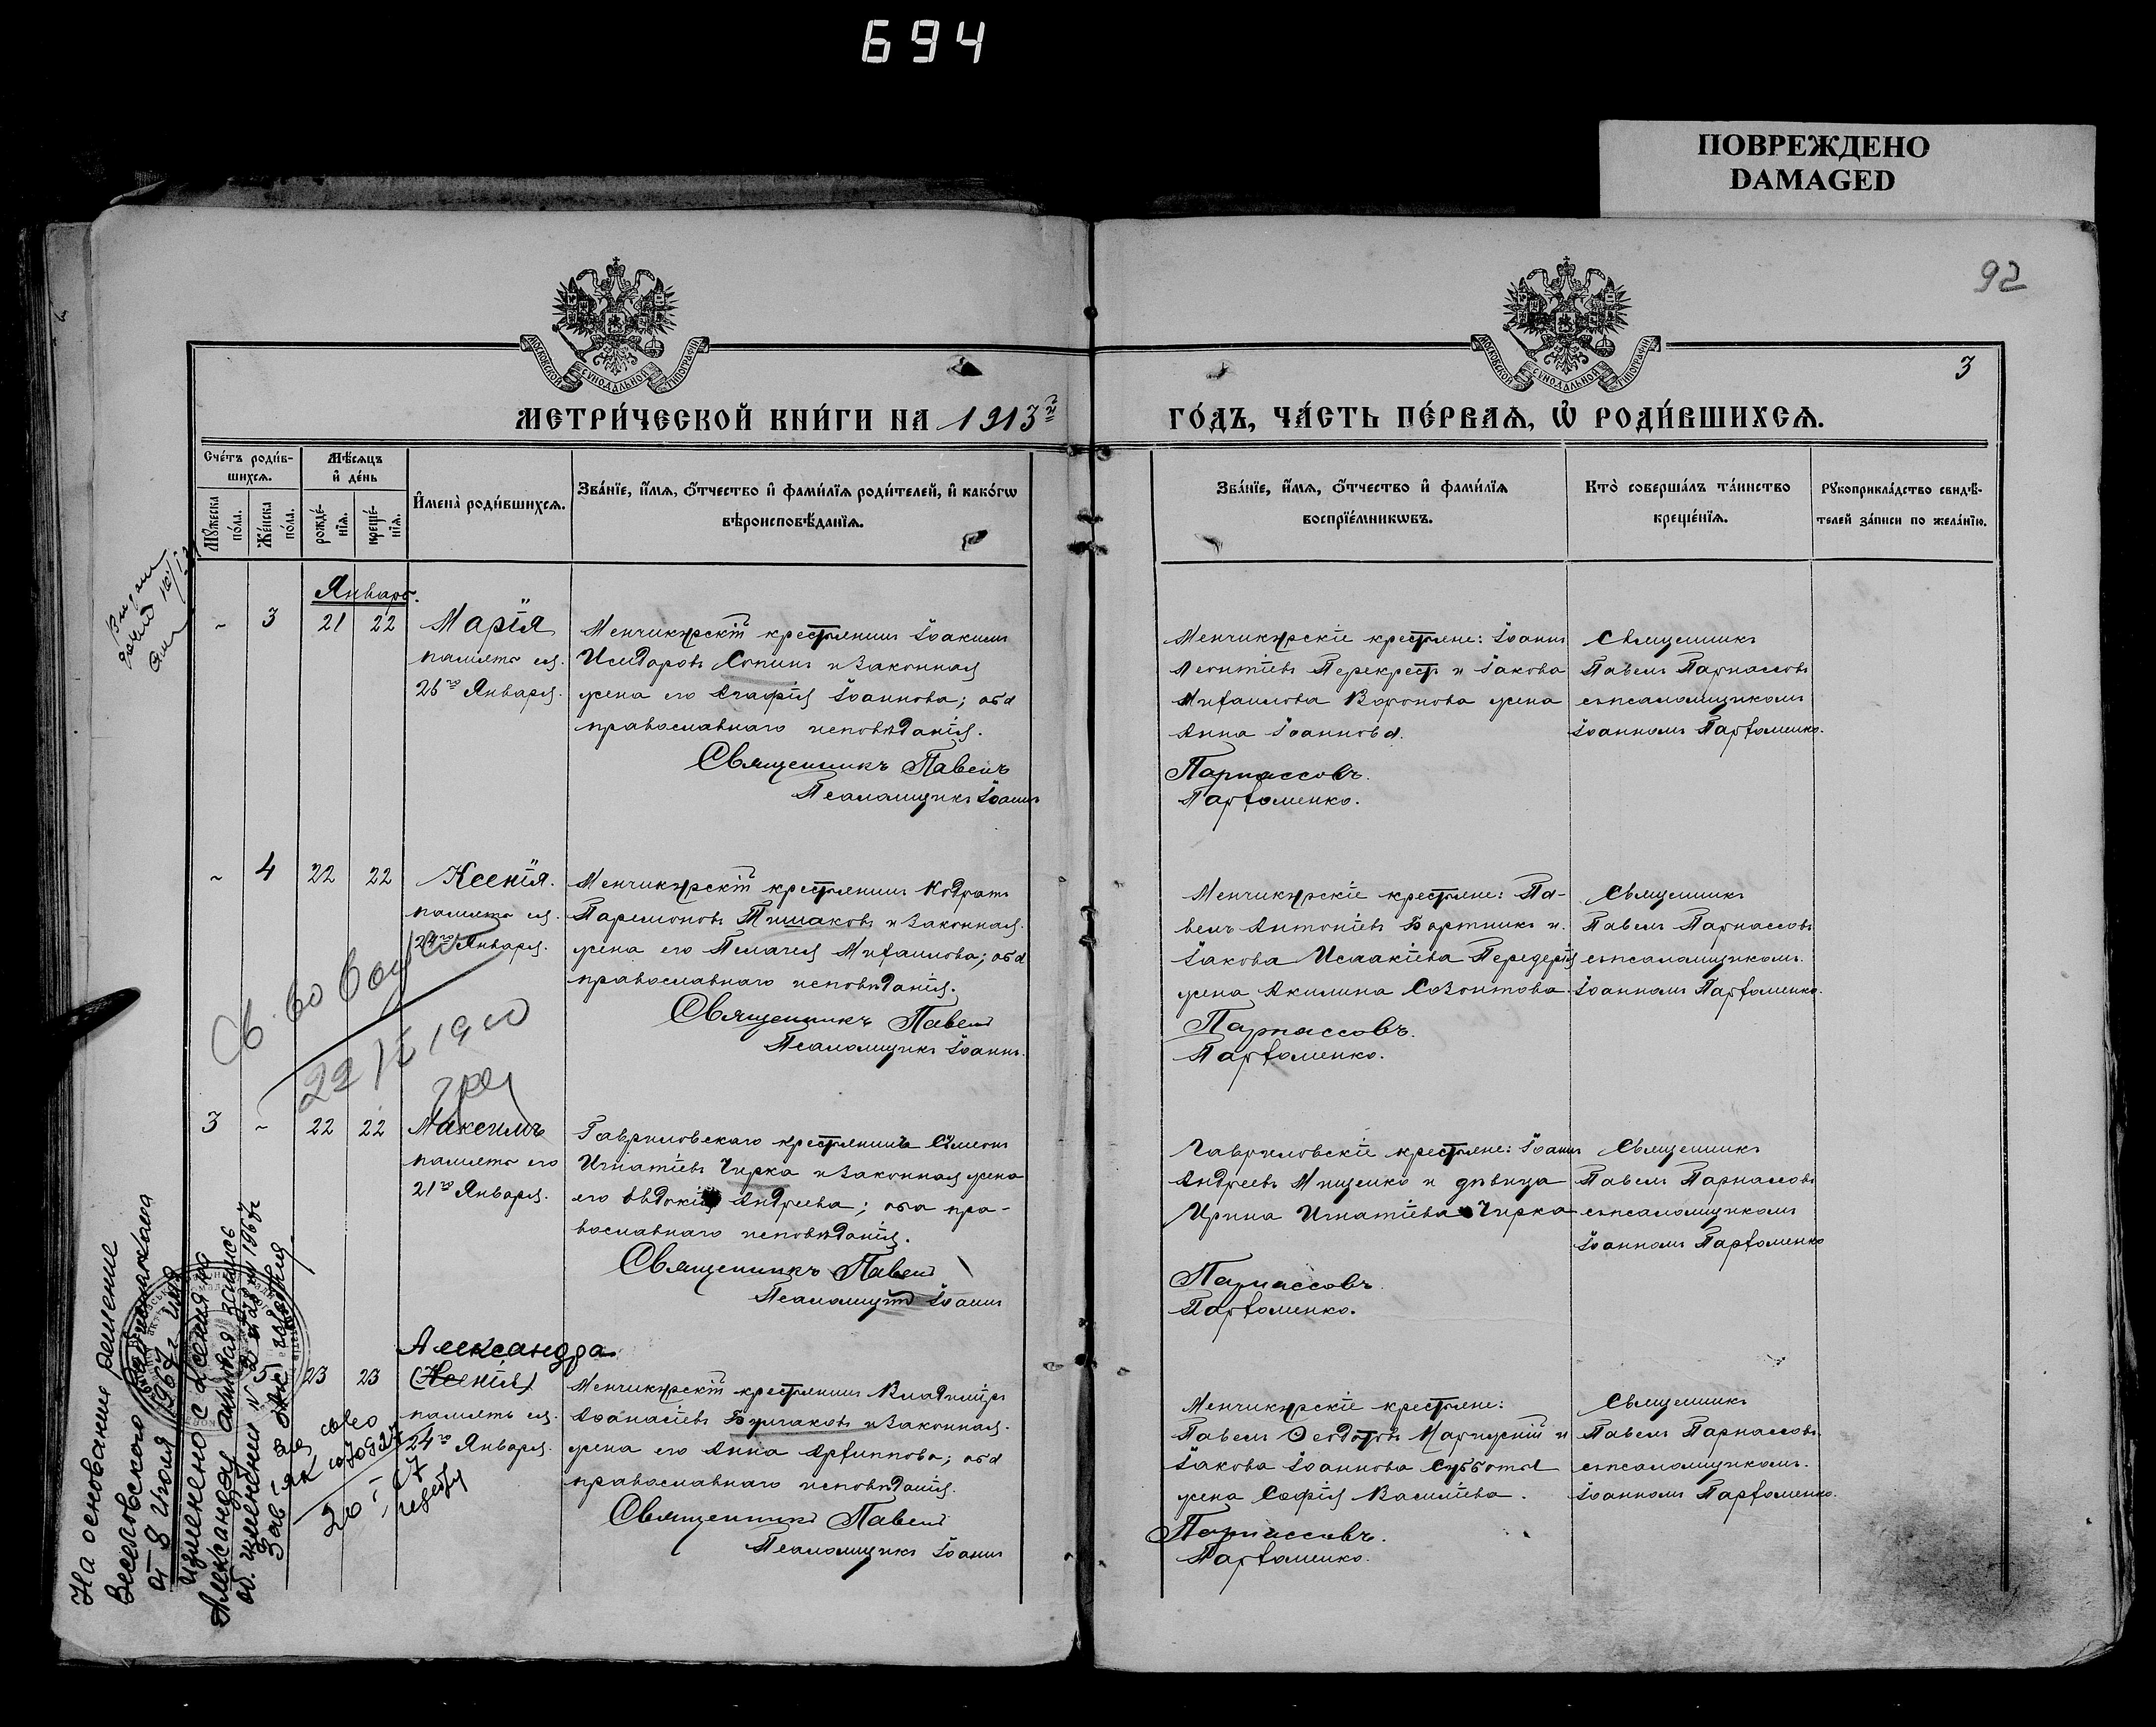 694
ПОВРЕЖДЕНО
DAMAGED
92
3
МОСКОВСКОЙ СѴНОДАЛЬНОЙ ТИПОГРАФІИ
МОСКОВСКОЙ СѴНОДАЛЬНОЙ ТИПОГРАФІИ
МЕТРИ́ЧЕСКОЙ КНИ́ГИ НА 1913й ГО́ДЪ, ЧА́СТЬ ПЕ́РВАѦ, Ѡ҆ РОДИ́ВШИХСѦ.
Сче́тъ роди́в-
шихсѧ.
Мꙋ́жеска по́ла.
Же́нска по́ла.
Мѣ́сѧцъ
и҆ де́нь
рожде́-
нїѧ.
креще́-
нїѧ.
И҆мена̀ роди́вшихсѧ.
Зва́нїе, и҆́мѧ, ѻ҆́тчество и҆ фами́лїѧ роди́телей, и҆ како́гѡ
вѣроисповѣ́данїѧ.
Зва́нїе, и҆́мѧ, ѻ҆́тчество и҆ фами́лїѧ
воспрїе́мникѡвъ.
Кто̀ соверша́лъ та́инство
креще́нїѧ.
Рꙋкоприкла́дство свидѣ́-
телей за́писи по жела́нїю.
Январь.
~ 3 21 22 Марія
память ея
26го Января.
Менчикурскій крестьянинъ Іоакимъ
Исидоровъ Сопинъ и законная
жена его Агафія Іоаннова; оба
православнаго исповѣданія.
Священникъ Павелъ
Псаломщикъ Іоаннъ
Менчикурскіе крестьяне: Іоаннъ
Леонтіевъ Перекрестъ и Іакова
Михаилова Воронова жена
Анна Іоаннова.
Парнассовъ.
Парфоменко.
Священникъ
Павелъ Парнассовъ
съ псаломщикомъ
Іоанномъ Парфоменко.
~ 4 22 22 Ксенія.
память ея
24го Января.
Менчикурскій крестьянинъ Кодратъ
Парамоновъ Тимаковъ и законная
жена его Пелагея Михаилова; оба
православнаго исповѣданія.
Священникъ Павелъ
Псаломщикъ Іоаннъ.
Менчикурскіе крестьяне: Па-
велъ Антоніевъ Бортникъ и
Іакова Исаакіева Передерія
жена Акилина Созонтова.
Парнассовъ.
Парфоменко.
Священникъ
Павелъ Парнассовъ
съ псаломщикомъ
Іоанномъ Парфоменко.
3 ~ 22 22 Максимъ
память его
21го Января.
Гавриловскаго крестьянина Симеонъ
Игнатіевъ Чирка и законная жена
его Евдокія Андреева; оба пра-
вославнаго исповѣданія.
Священникъ Павелъ
Псаломщикъ Іоаннъ
Гавриловскіе крестьяне: Іоаннъ
Андреевъ Мищенко и дѣвица
Ирина Игнатіева Чирка
Парнассовъ.
Парфоменко.
Священникъ
Павелъ Парнассовъ
съ псаломщикомъ
Іоанномъ Парфоменко
Александра
23 23 (Ксенія)
память ея
24го Января.
Менчикурскій крестьянинъ Владиміръ
Аѳанасіевъ Бурлаковъ и законная
жена его Анна Архиппова; оба
православнаго исповѣданія.
Священникъ Павелъ
Псаломщикъ Іоаннъ
Менчикурскіе крестьяне:
Павелъ Ѳеодотовъ и
Іакова Іоаннова Субботы
жена Софія Васильева.
Парнассовъ.
Парфоменко.
Священникъ
Павелъ Парнассовъ
съ псаломщикомъ
Іоанномъ Парфоменко.
На основание решение
Веселовского Райисполкома
от 8 июля 1967г имя
изменено с Ксения на
Александру актовая запись
об изменении №